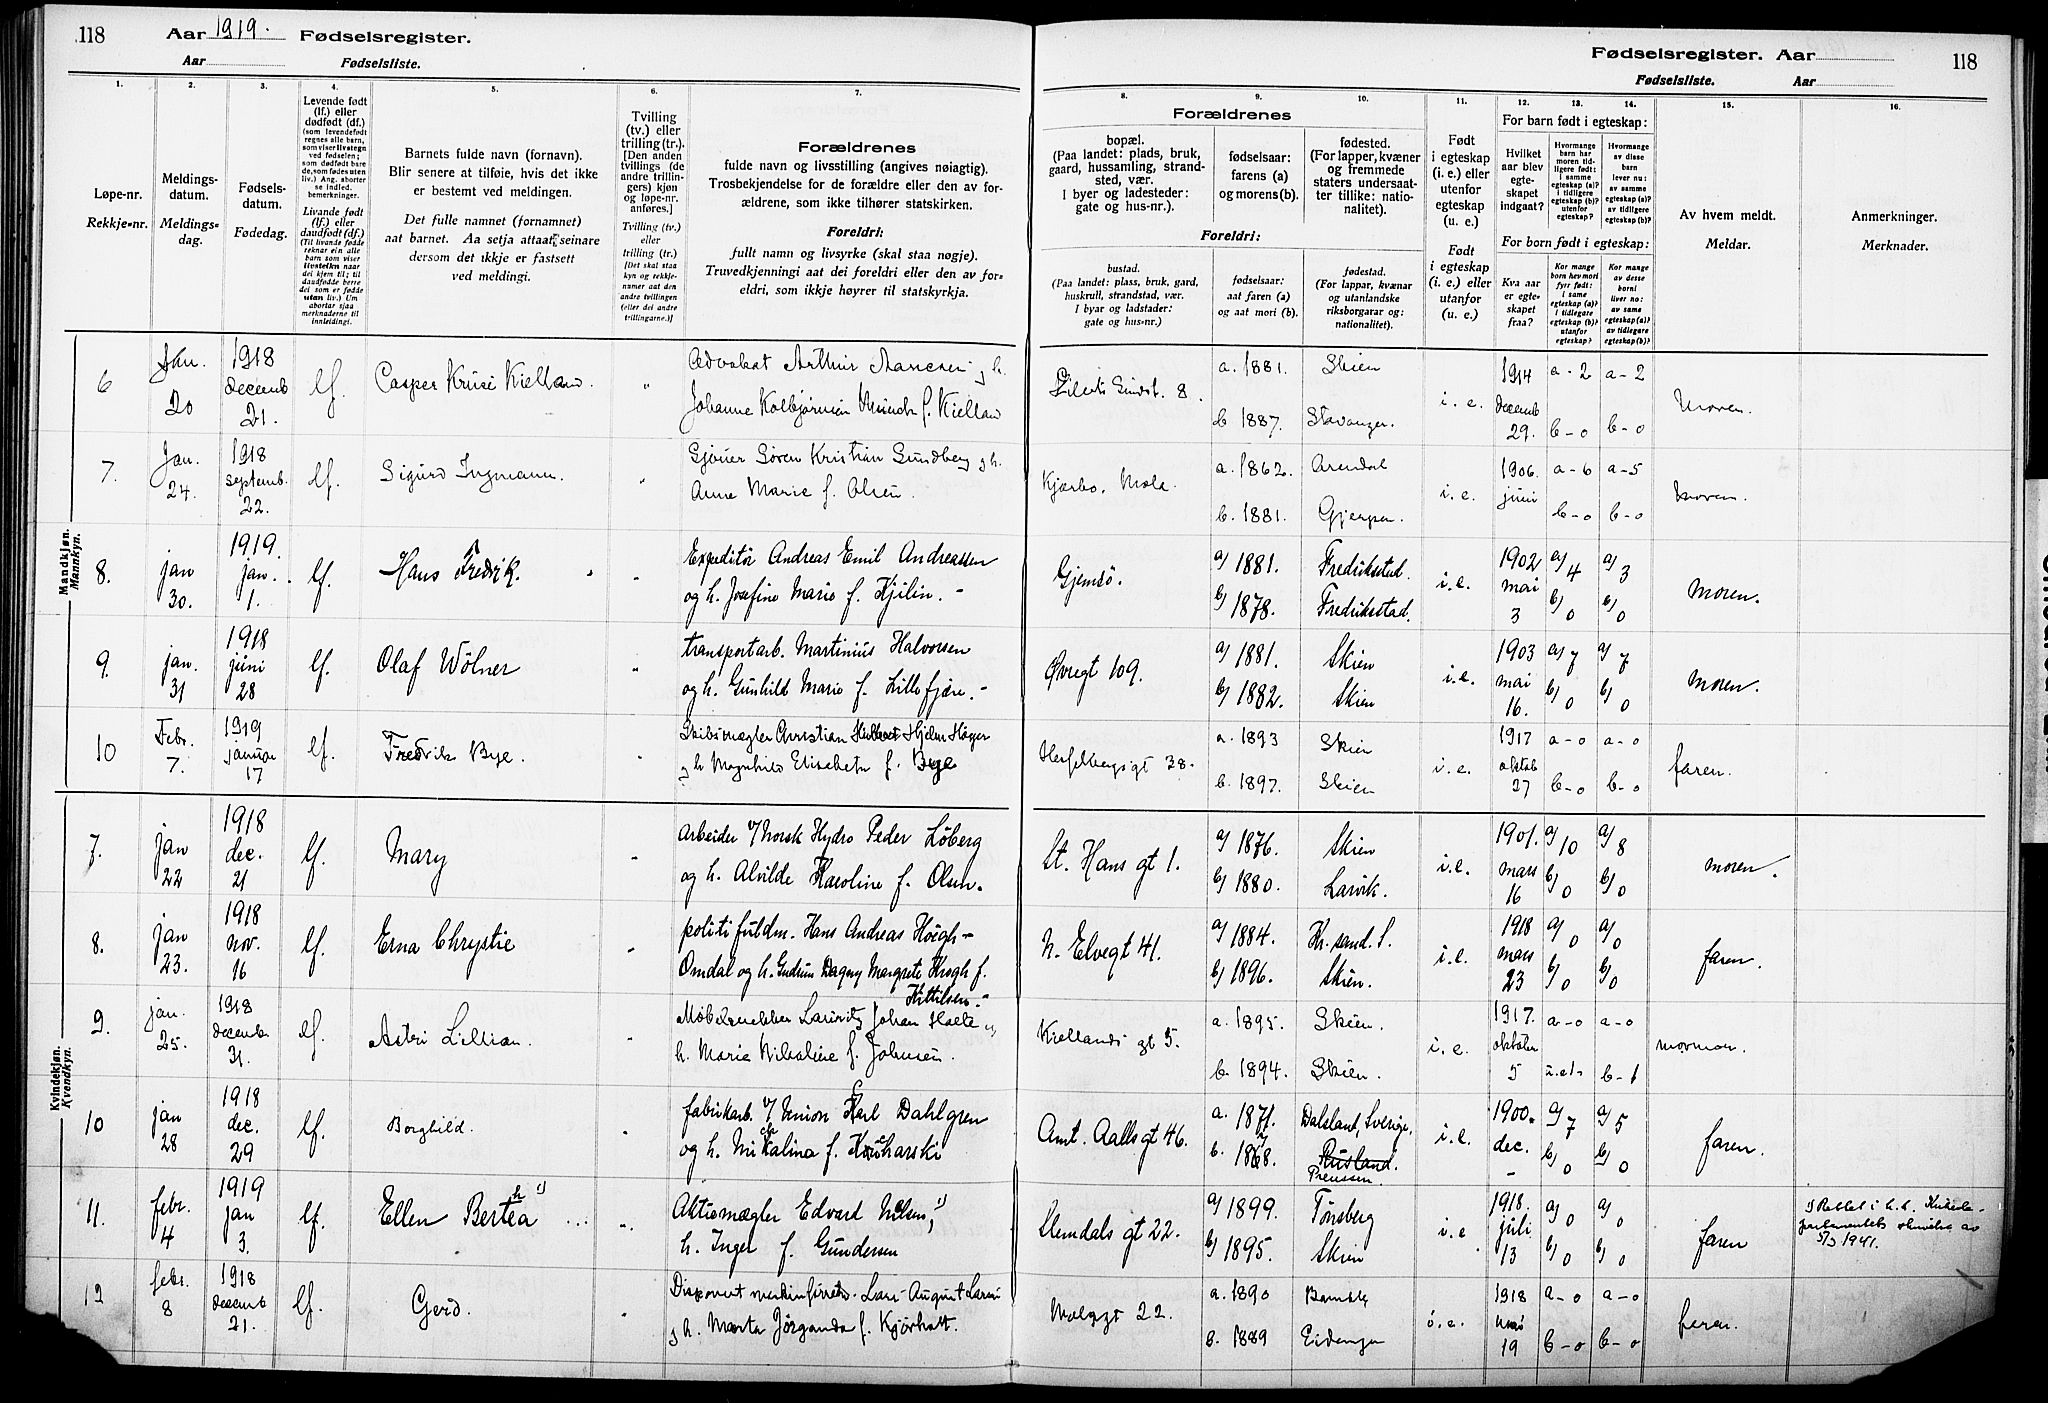 118 Aar 1919. Fødselsregister.
Aar Fødselsliste.
Fødselsregister. Aar 118
Fødselsliste. Aar
1.
Løpe-nr.
Rekkje-nr.
2.
Meldings-
datum.
Meldings-
dag.
3.
Fødsels-
datum.
Fødedag.
4.
Levende født
(lf.) eller
dødfødt (df.)
(som levendefødt
regnes alle barn,
som viser livstegn
ved fødselen;
som dødfødt bare
de, som fødes uten
liv.) Ang. aborter
se indled.
bemerkninger.
Livande født
(lf.) eller
daudfødt (df.)
(Til livande fødde
reknar ein alle
barn som viser
livsteikn naar
dei kjem til; til
daudfødde berre
dei som er fødde
utan liv.) Um
abortar sjaa
merknaderne til
innleidingi.
5.
Barnets fulde navn (fornavn).
Blir senere at tilføie, hvis det ikke
er bestemt ved meldingen.
Det fulle namnet (fornamnet)
aat barnet. Aa setja attaat seinare
dersom det ikkje er fastsett
ved meldingi.
6.
Tvilling
(tv.) eller
trilling (tr.).
[Den anden
tvillings (de
andre trillin-
gers) kjøn
og løpe-nr.
anføres.]
Tvilling (tv.)
eller
trilling (tr.)
[Det skal staa
kyn og rekkje-
numer aat den
andre tvillingen
(eller dei andre
trillingarne.)]
7.
Forældrenes
fulde navn og livsstilling (angives nøiagtig).
Trosbekjendelse for de forældre eller den av for-
ældrene, som ikke tilhører statskirken.
Foreldri:
fullt namn og livsyrke (skal staa nøgje).
Truvedkjenningi aat dei foreldri eller den av for-
eldri, som ikkje høyrer til statskyrkja.
Forældrenes
8.
bopæl.
(Paa landet: plads, bruk,
gaard, hussamling, strand-
sted, vær.
I byer og ladesteder:
gate og hus-nr.).
Foreldri:
bustad.
(Paa landet: plass, bruk, gard,
huskrull, strandstad, vær.
I byar og ladstader:
gate og hus-nr.)
9.
fødselsaar:
farens (a)
og morens (b).
fødselsaar:
aat faren (a)
og aat mori (b).
10.
fødested.
(For lapper, kvæner
og fremmede
staters undersaat-
ter tillike: natio-
nalitet).
fødestad.
(For lappar, kvænar
og utanlandske
riksborgarar og:
nationalitet).
11.
Født
i egteskap
(i. e.) eller
utenfor
egteskap
(u. e.)
Født
i egteskap
(i. e.) eller
utanfor
(u. e.)
For barn født i egteskap:
12.
Hvilket
aar blev
egte-
skapet
indgaat?
13.
Hvormange
barn har
moren tid-
ligere født:
i samme
egteskap (a)?
i tidligere
egteskap (b)?
utenfor
egteskap?
14.
Hvormange
av disse
barn
lever nu:
av samme
egteskap (a)?
av tidligere
egteskap (b)?
For born født i egteskap:
Kva aar
er egte-
skapet
fraa?
Kor mange
born hev mori
fyrr født:
i same
egteskap (a)?
i tidlegare
egteskap (b)?
utanfor
egteskap?
Kor mange
av desse
borni
liver no:
av same
egteskap (a)?
av tidlegare
egteskap (b)?
15.
Av hvem meldt.
Meldar.
16.
Anmerkninger.
Merknader.
Mandkjøn.
Mannkyn.
6 Jan. 20 1918 decemb 21. lf. Casper Kruse Kielland. " Advokat Arthur g h.
Johanne Kolbjørnsen Munch f. Kielland
8. a. 1881. b 1887. Skien Stavanger. i. e. 1914 decemb 29. a - 2 b - 0 a - 2 b - 0 moren.
7. Jan. 24. 1918 septemb. 22. lf. Sigurd Ingmann. " Søren Kristian Sundberg g h.
Anne Marie f. Olsen.
Kjærbo, Mæla. a. 1862. b. 1881. Arendal Gjerpen. i. e. 1906. juni a - 6 b - 0 a - 5 b - 0 moren.
8. jan 30. 1919. jan. 1. lf. Hans Fredrik. " Expeditør Andreas Emil Andreassen
og h. Josefine Marie f. Kjilin. -
Gjemsø. a/ 1881. b/ 1878. Fredriksstad. Fredriksstad. i. e. 1902 mai 3 a/ 4 b/ 0 a/ 3 b/ 0 moren.
9. jan. 31 1918 juni 28 lf. Olaf Wölner " transportarb. Martinius Halvorsen
og h. Gunhild Marie f. Lillefjære. -
Øvregt 109. a/ 1881. b/ 1882. Skien Skien i. e. 1903 mai 16. a/ 7 b/ 0 a/ 7 b/ 0 moren.
10 Febr. 7. 1919 januar 17 lf. Fredrik Bye. Skibsmægler Christian Hjelm Høyer
g h Magnhild Elisabeth f. Bye
Hesselbergsgt 38. a. 1893 b. 1897. Skien Skien i. e. 1917 oktob 27 a - 0 b - 0 a - 0 b - 0 faren.
Kvindekjøn.
Kvendkyn.
7. jan 22 1918 dec. 21 lf. Mary " Arbeider v/ Norsk Hydro Peder Löberg
og h. Alvilde Karoline f. Olsen.
St. Hans gt 1. a/ 1876. b/ 1880. Skien Larvik. i. e. 1901. mars 16 a/ 10 b/ 0 a/ 8 b/ 0 moren.
8. jan 23. 1918 nov. 16 lf. Erna Chrystie " politifuldm. Hans Andreas Høegh-
Omdal og h. Gudrun Dagny Margrete Krogh f.
Kittilsen. -
N. Elvegt 41. a/ 1884. b/ 1896. Kr. sand. S. Skien. i. e. 1918 mars 23 a/ 0 b/ 0 a/ 0 b/ 0 faren.
9. jan. 25. 1918 december 31. lf. Astri Lillian. " Møbelsnekker Lauritz Johan Halle g
h. Marie Nikoline f. Johnsen.
Kiellands gt 5. a. 1895. b. 1894. Skien. Skien. i. e. 1917. oktober 5 a - 0 u.e 1- a - 0 b - 1 mormor.
10 jan 28 1918 dec. 29 lf. Borghild. " fabrikarb. v/ Union Karl Dahlgren
og h. Mikalina f. Kucharski
Amt. Aalls gt 46. a. 1871. b. 1868. Dalsland, Sverige, Rusland. Preussen. i. e. 1900. dec. - a/ 7 b/ 0 a/ 5 b/ 0 faren.
11. febr. 4 1919 jan 3. lf. Ellen Bertha 1) " Aktiemægler Edvard Nilsen, 1)
h. Inger f. Gundersen
Stemdals gt 22. a/ 1899. b/ 1895. Tønsberg Skien i. e 1918. juli 13 a/ 0 b/ 0 a/ 0 b/ 0 faren
1) Rettet i h. t. Kirkede-
partementets skrivelse av
5/3 1941.
12 febr. 8 1918 decemb 21. lf. Gerd. " Lars August
g h. Marta Jørganda f. Kjørholt.
Mælagt 22. a. 1890 b. 1889 Bamble Eidanger i. e. 1918 mai 19 a - 0 b - 0 a - 0 b - 0 faren.